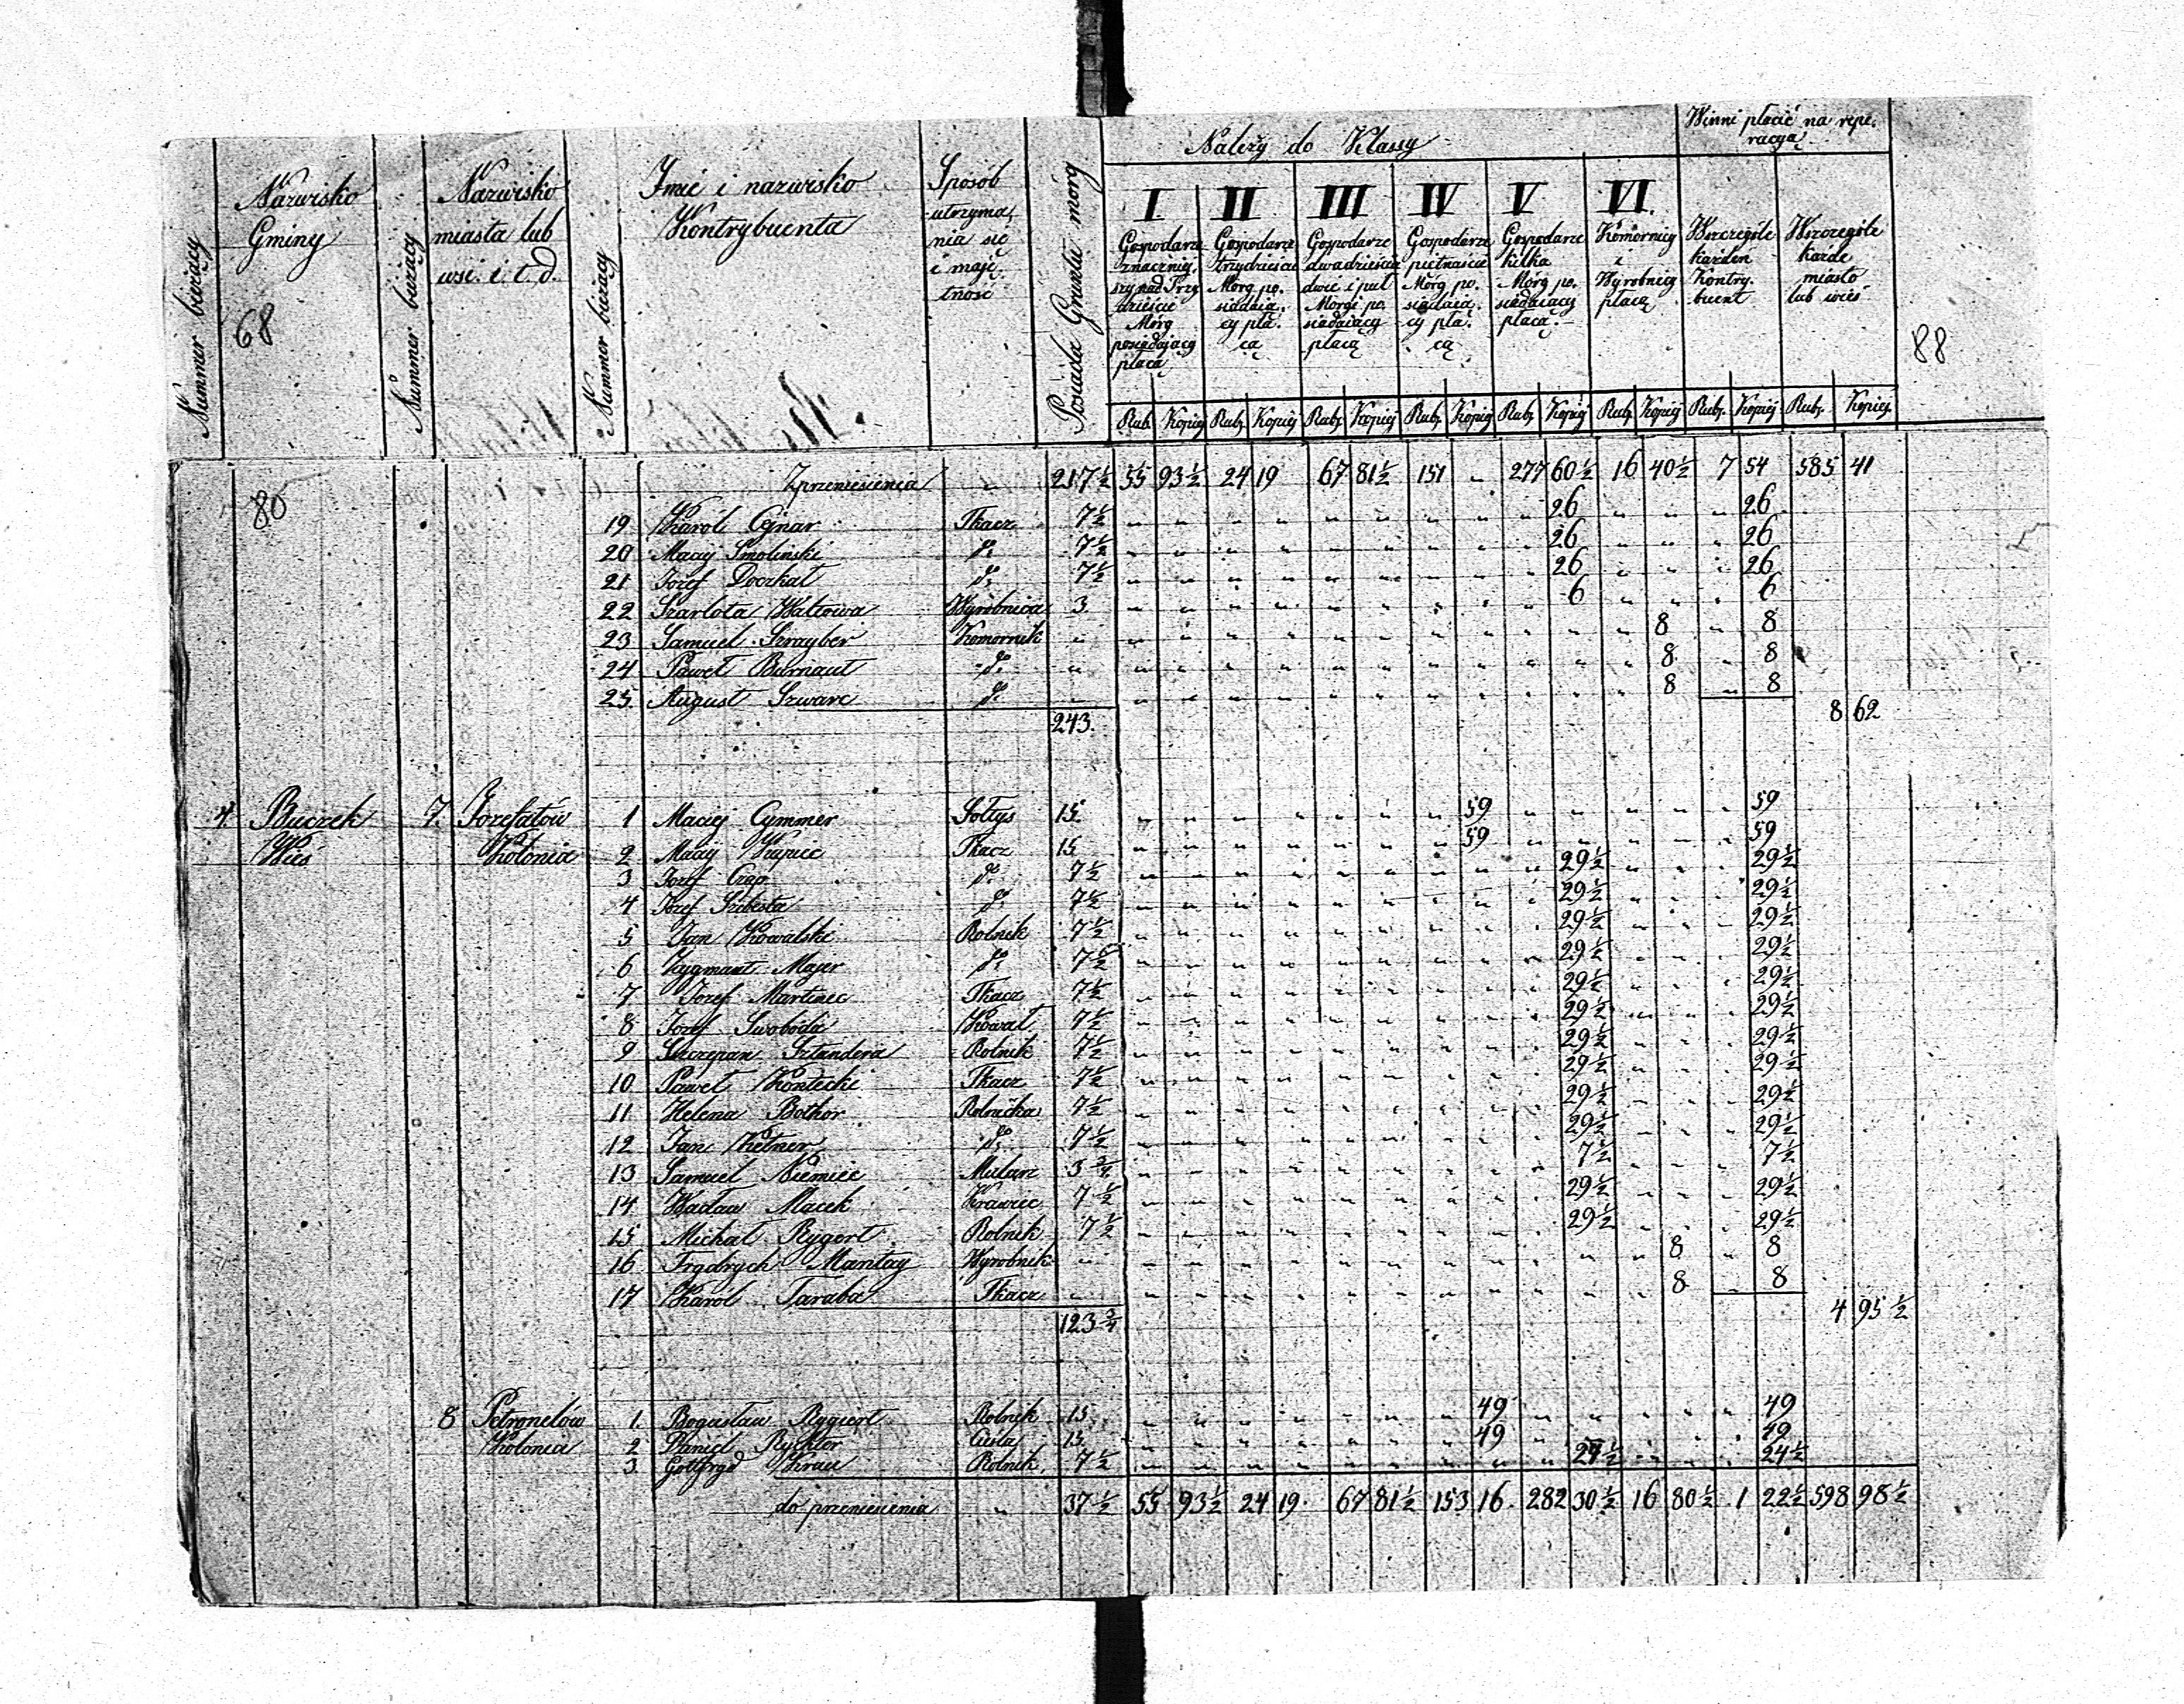 Winni płacić na repe-
racyą
Należy do Klassy
Nummer bieżący
Nazwisko
Gminy
68
Nummer bieżący
Nazwisko
miasta lub
wsi. i t. d.
Nummer bieżący
Jmie i nazwisko
Kontrybuenta
Sposób
utrzyma,
nia się
i maję,
tność
Posiada Gruntu mórg
I
Gospodarze
znaczniej,
szy nad Trzy
dzieście
Mórg
posiadający
płacą
II
Gospodarze
trzydzieście
Mórg po.
siadają.
cy pła.
cą
III
Gospodarze
dwadzieścia
dwie i puł
Morgi po.
siadający
płacą
IV
Gospodarze
pietnaście
Mórg po.
siadają.
cy pła.
cą
V
Gospodarze
kilka
Mórg po.
siadający
płacą.
VI.
Komornicy
i
Wyrobnicy
płacą
Wszczególe
każden
Kontry.
buent
Wszczególe
każde
miasto
lub wieś
88
Rub. Kopiej Rub. Kopiej Rub. Kopiej Rub. Kopiej Rub. Kopiej Rub. Kopiej Rub. Kopiej Rub. Kopiej.
80
Zprzeniesienia " 217½ 55 93½ 24 19 67 81½ 151 " 277 60½ 16 40½ 7 54 585 41
19 Karól Cejnar Tkacz 7½ 26 26
20 Maciej Smoliński do 7½ 26 26
21 Jozef Doczkał do 7½ 26 26
22 Szarlota Waltowa Wyrobnica 3 6 6
23 Samuel Szrayber Komornik " 8 8
24 Paweł Burnaut do " 8 8
25. August Szwarc do " 8 8
243. 8 62
4 Buczek 7. Jozefatów 1 Maciej Cymmer Sołtys 15 59 59
Wieś Kolonia 2 Maciej Kupiec Tkacz 15 59 59
3 Jozef Czap do 7½ 29½ 29½
4 Jozef Szebesta do 7½ 29½ 29½
5 Jan Kowalski Rolnik 7½ 29½ 29½
6 Zygmant Majer do 7½ 29½ 29½
7 Jozef Martinec Tkacz 7½ 29½ 29½
8 Jozef Swoboda Kowal 7½ 29½ 29½
9 Szczepan Sztandera Rolnik 7½ 29½ 29½
10 Paweł Kontecki Tkacz 7½ 29½ 29½
11 Helena Bothor Rolniczka 7½ 29½ 29½
12 Jan Ketner do 7½ 29½ 29½
13 Samuel Niemiec Malarz 3¾ 7½ 7½
14 Wacław Macek Krawiec 7½ 29½ 29½
15 Michał Rygert Rolnik 7½ 29½ 29½
16 Frydrych Mantay Wyrobnik " 8 8
17 Karól Taraba Tkacz " 8 8
123¾ 4 95½
8 Petronelów 1. Bogusław Rygiert Rolnik 15 49 49
Kolonia 2 Daniel Rychter Cieśla 15 49 49
3. Gotfryd Krau Rolnik 7½ 24½ 24½
do przeniesienia " 37½ 55 93½ 24 19. 67 81½ 153 16. 282 30½ 16 80½ 1 22½ 598 98½